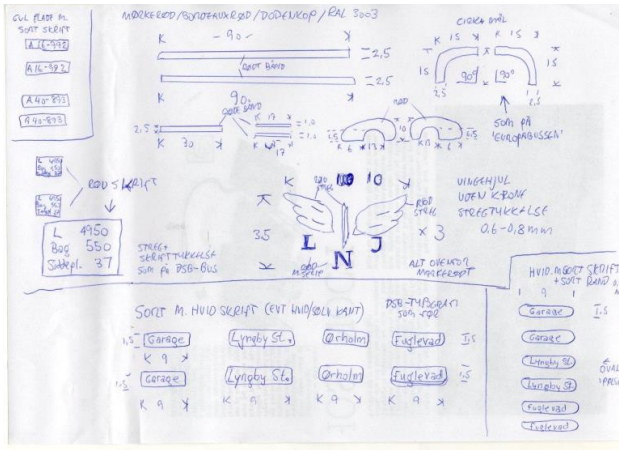 GUL PLADE M.
SORT SKRIFT
A16-992
A16-992
A40-893
A40-893
MØRKERØD/BORDEAUXRØD/DODENKOP/RAL 3003
K - 90 - K
RØDT BÅND
2,5
2,5
K 90 K
RØDE BÅND
2,5
K 30 K
K 17 K
1,0
1,0
17
RØD
10
1,5
1,5
CIRKA MÅL
K 15 K
K 15 K
15
15
90°
90°
2,5
1,5
SOM PÅ
"EUROPABUSSEN"
RØD SKRIFT
L 4950
Bag 550
Siddepl. 37
STREG+
SKRIFTTYKKELSE
SOM PÅ DSB-BUS
K 10 K
RØD
STREG
RØD
STREG
35
L N J
x 3
VINGEHJUL
UDEN KRONE
STREGTYKKELSE
0.6-0,8mm
ALT OVENFOR
MØRKERØDT
SORT M. HVID SKRIFT (EVT HVID/SØLV KANT)
DSB-TYPOGRAFI
SOM FØR
1,5 Garage Lyngby St. Ørholm Fuglevad 1,5
K 9 K
1,5 Garage Lyngby St. Ørholm Fuglevad 1,5
K 9 K K 9 K K 9 K K 9 K
HVID M. SORT SKRIFT
+ SORT RAND
9
Garage 1,5
Garage
Lyngby St.
Lyngby St.
Fuglevad
Fuglevad